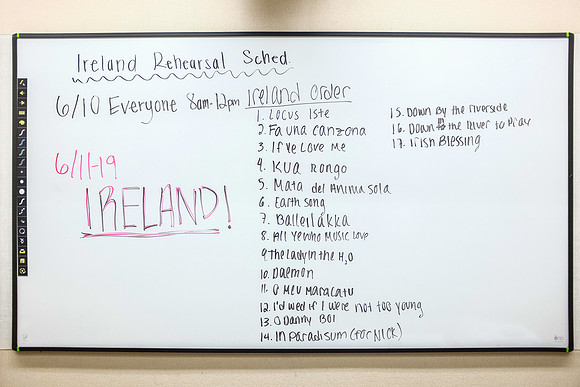 Ireland Rehearsal Sched.
6/10 Everyone 8am-12pm
6/11-19
IRELAND!
Ireland Order
1. Locus Iste
2. Fa una canzona
3. If Ye Love Me
4. Kua Rongo
5. Mata del Anima sola
6. Earth song
7. Balleilakka
8. All Ye Who Music Love
9. The Lady in the H₂O
10. Daemon
11. O Meu Maracatu
12. I'd wed if I were not too young
13. O Danny Boi
14. In paradisum (for Nick)
15. Down By the riverside
16. Down to the River to Pray
17. Irish Blessing